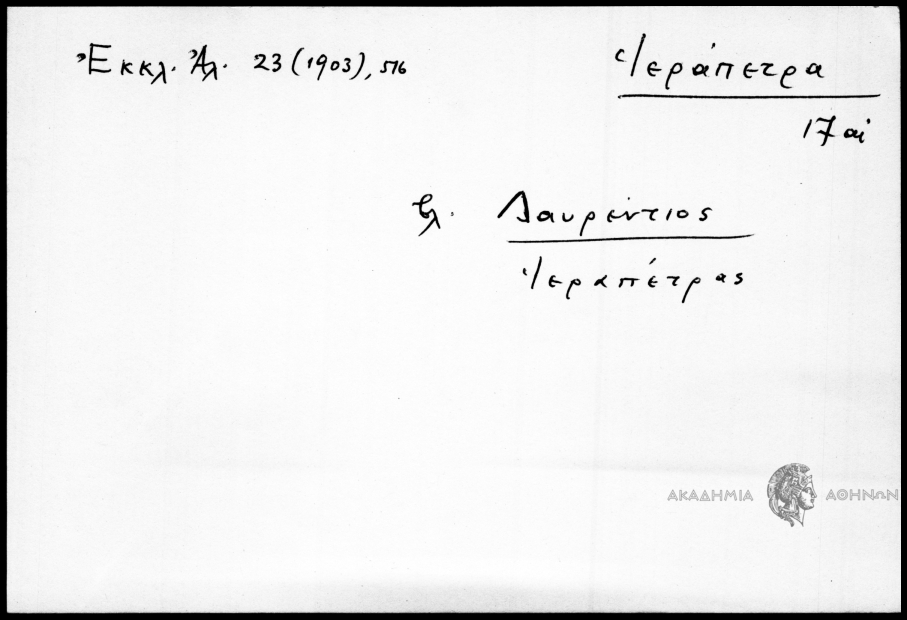 Ἐκκλ. Ἀλ. 23 (1903), 516
Ἱεράπετρα
17 αἰ
βλ. Λαυρέντιος
Ἱεραπέτρας
ΑΚΑΔΗΜΙΑ ΑΘΗΝΩΝ